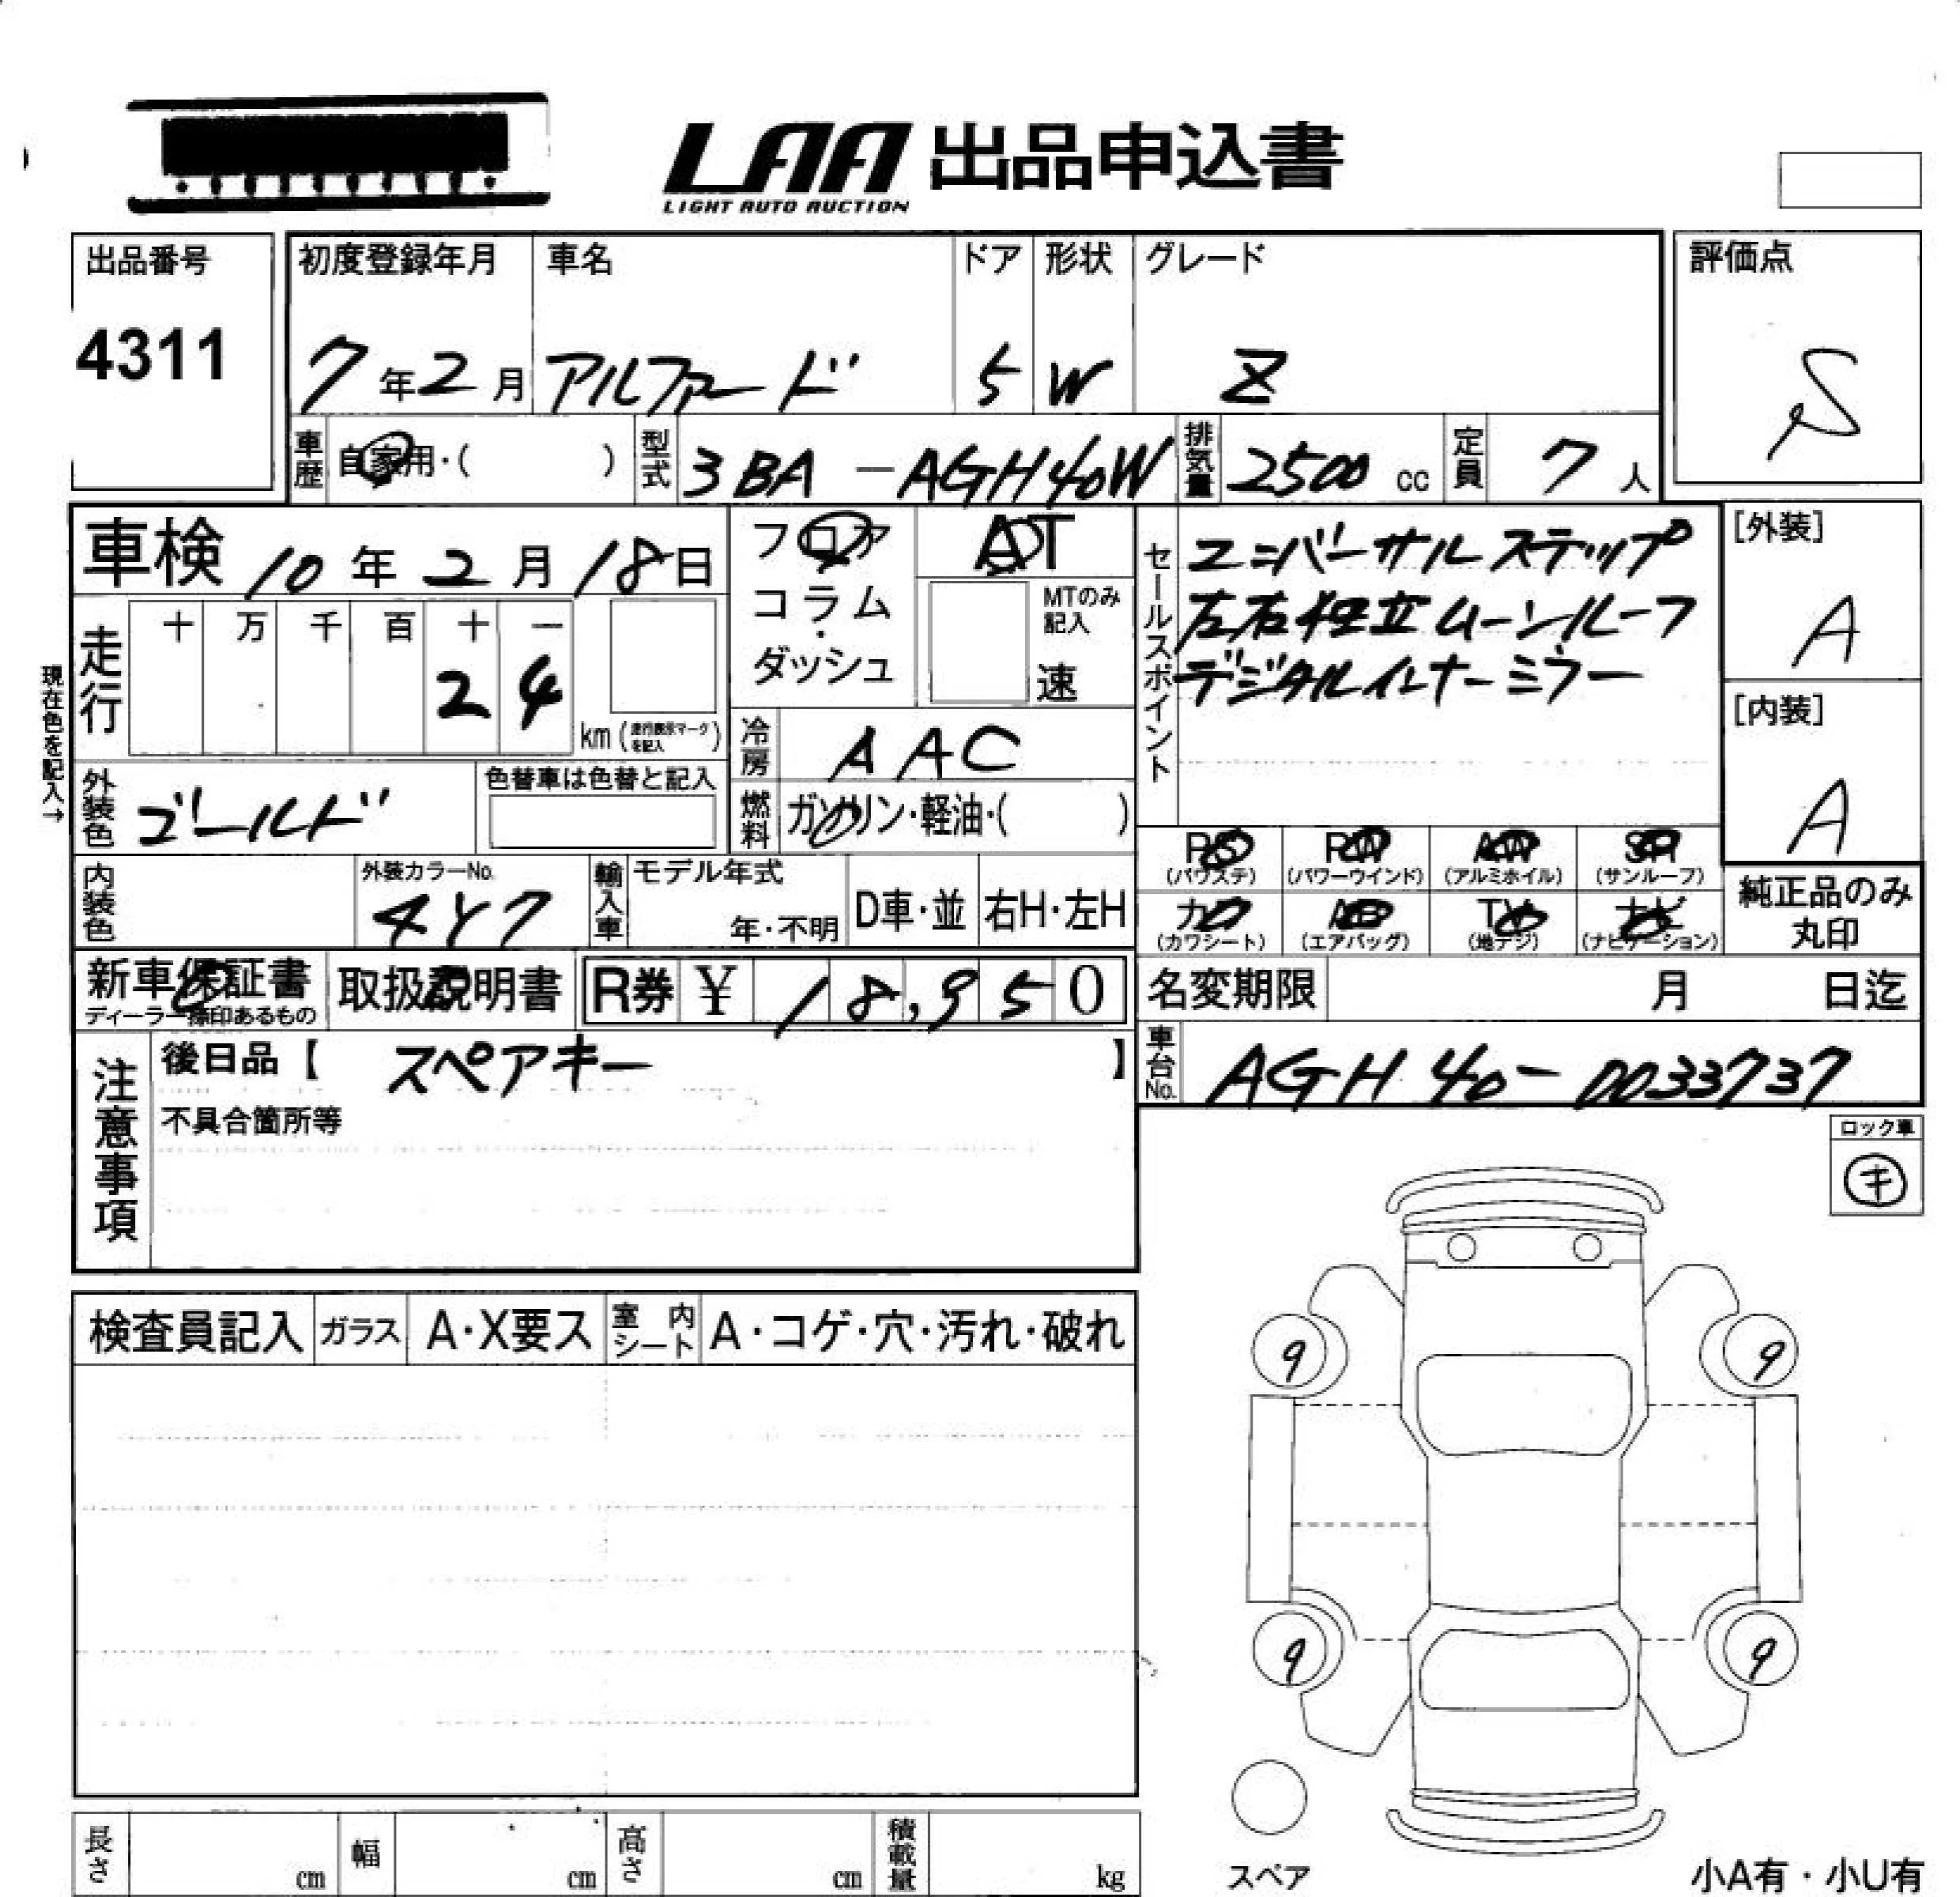 LAA 出品申込書
LIGHT AUTO AUCTION
出品番号
4311
初度登録年月
7年2月
車名
アルファード
ドア
5
形状
W
グレード
Z
評価点
S
車歴
自家用・( )
型式
3BA-AGH40W
排気量
2500 cc
定員
7人
車検 10年2月18日
フロア
コラム
・
ダッシュ
AT
MTのみ
記入
速
セールスポイント
ユニバーサルステップ
左右独立ムーンルーフ
デジタルインナーミラー
[外装]
A
[内装]
A
現在色を記入→
走行
十 万 千 百 十 一
2 4
km (走行表示マークを記入)
冷房
AAC
燃料
ガソリン・軽油・( )
外装色
ゴールド
色替車は色替と記入
内装色
外装カラーNo.
4Y7
輸入車
モデル年式
年・不明
D車・並
右H・左H
PS
(パワステ)
PW
(パワーウインド)
AW
(アルミホイル)
SR
(サンルーフ)
カワ
(カワシート)
AB
(エアバッグ)
TV
(地デジ)
ナビ
(ナビゲーション)
純正品のみ
丸印
新車保証書
ディーラー捺印あるもの
取扱説明書
R券 ¥ 18,950
名変期限 月 日迄
車台No.
AGH40-0033737
注意事項
後日品【 スペアキー 】
不具合箇所等
ロック車
キ
検査員記入
ガラス
A・X要ス
室内シート
A・コゲ・穴・汚れ・破れ
9 9
9 9
スペア
小A有・小U有
長さ cm
幅 cm
高さ cm
積載量 kg